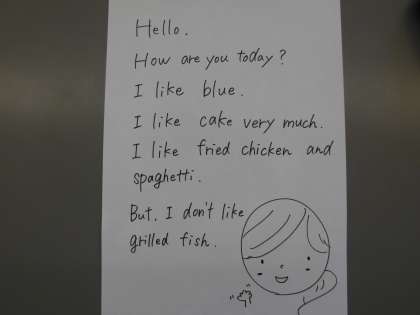 Hello.
How are you today?
I like blue.
I like cake very much.
I like fried chicken and
spaghetti.
But. I don't like
grilled fish.